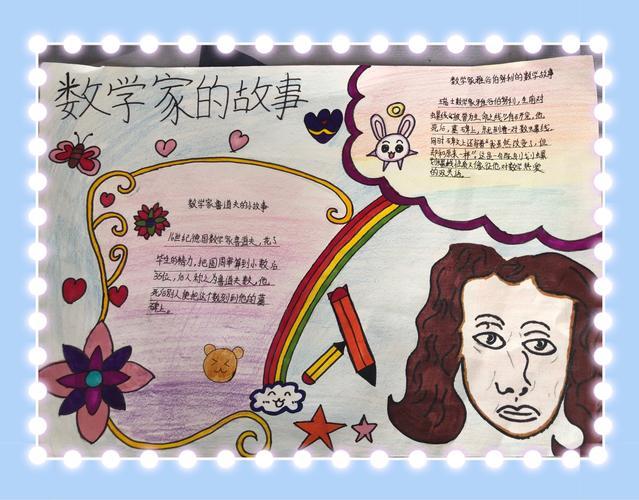 数学家的故事
数学家鲁道夫的小故事
16世纪德国数学家鲁道夫，花了
毕生的精力，把圆周率算到小数后
35位，后人称之为鲁道夫数，他
死后别人便把这个数刻到他的墓
碑上。
数学家雅谷伯努利的数学故事
瑞士数学家雅谷伯努利，生前对
螺线有被誉为生命之线有研究，他
死后，墓碑上，就刻着一对数螺线，
同时碑文上还写着"我虽然改变了，但
却和原来一样"这是一句既刻划螺
的双关语。